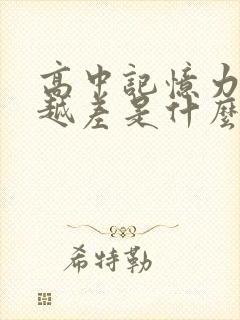 高中記憶力
越差是什麼
希特勒